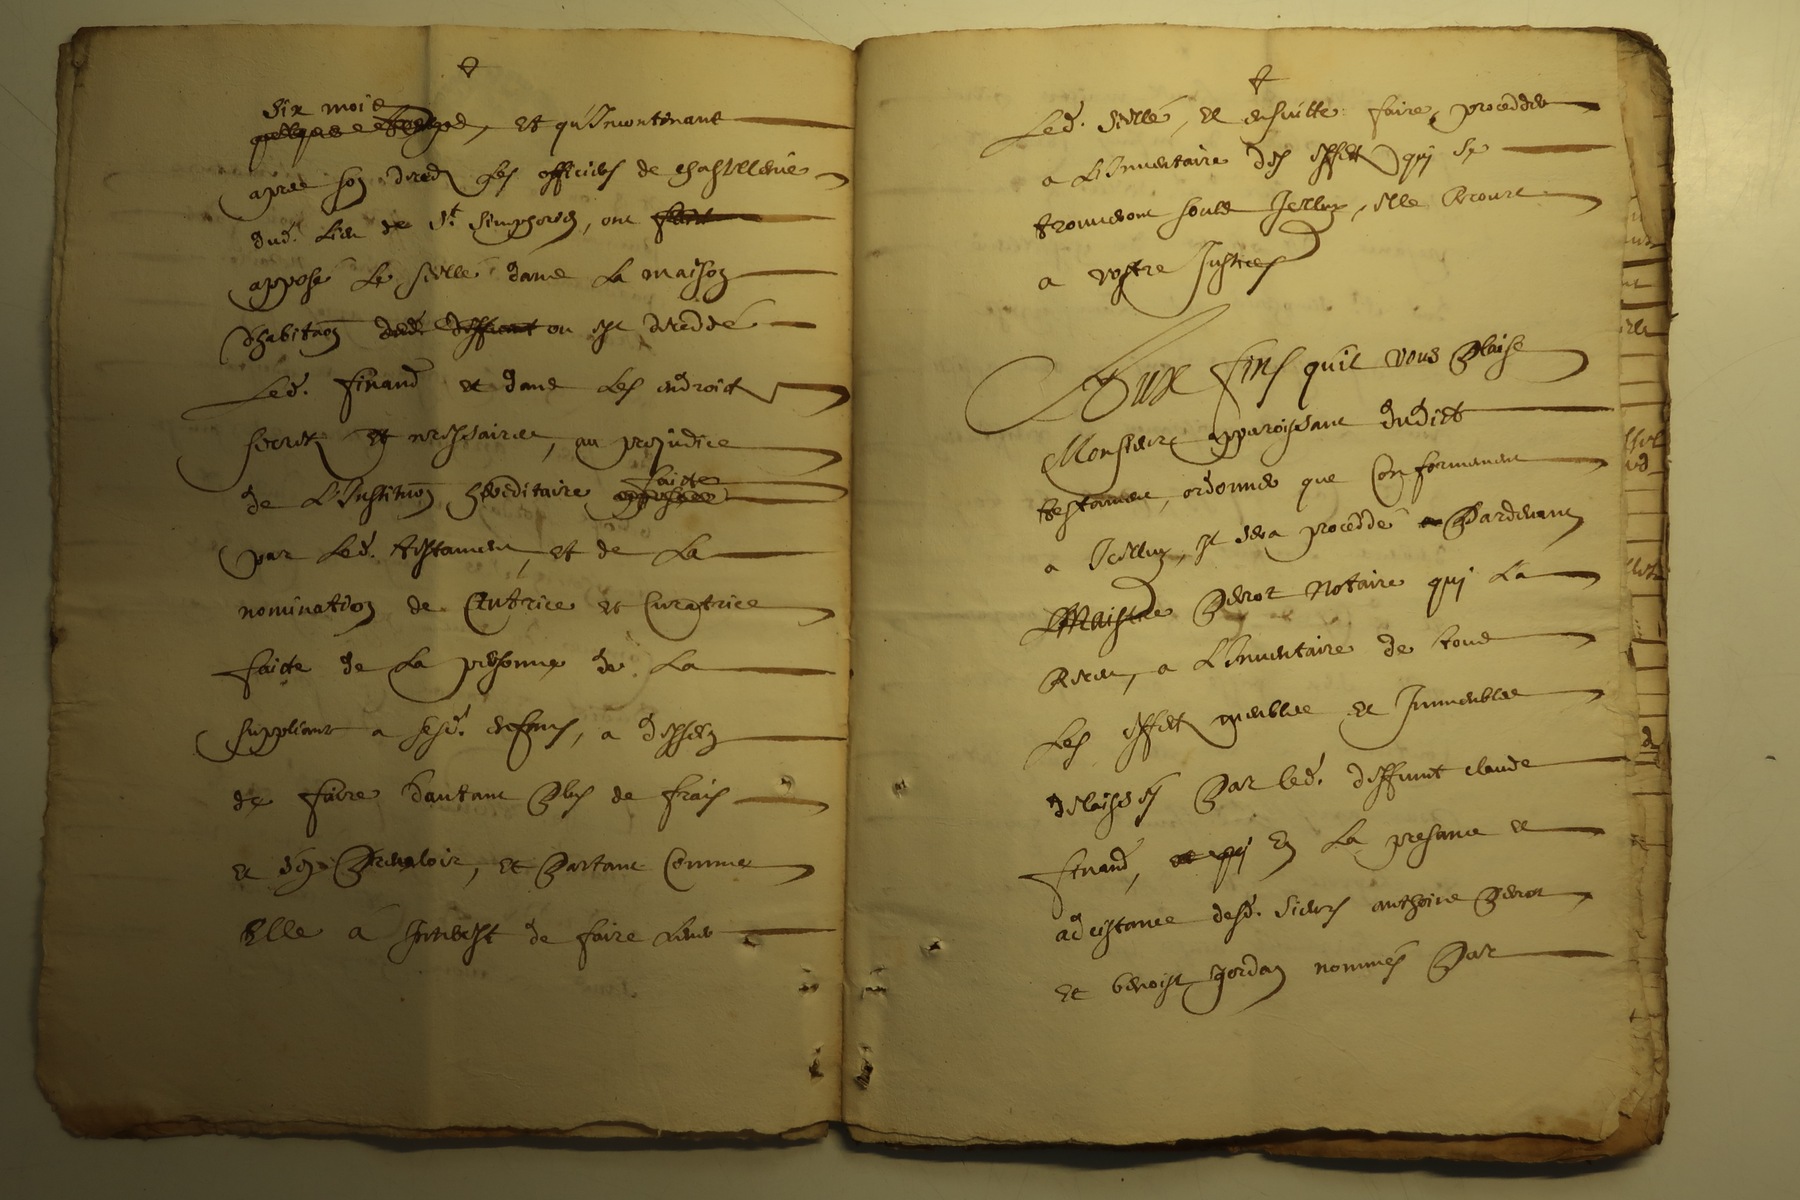 six mois
, et qu'Incontinant
apres son deced les officiers de chastellenie
dud. Lieu de St. Simphorien, ont
apposé le scellé dans La maison
d'habitaon ou est deceddé
Led. finand et dans Les endroict
secret et necessaires, au prejudice
faicte
de L'Institution hereditaire
par Led. testament, et de La
nomination de tutrice et Curatrice
faicte de La personne de La
suppliant a sesd. enfans, a dessein
de faire dautant plus de frais
et s'en prevaloir, et partant Comme
Elle a Interest de faire Lever
Led. scellé, et ensuitte faire, procedder
a L'Inventaire des effet qui se
trouveront soubs Icelluy, elle Recourt
a vostre Justice
Aux fins qu'il vous plaise
Monsieur apparoissant dudict
testament, ordonner que Conformement
a Icelluy, Il sera proceddé pardevant
Maistre perrot Notaire qui L'a
Receu, a L'Inventaire de tous
Les effet meubles et Immeubles
delaissés par led. deffunt claude
finand, En La presance et
adcistance desd. sieurs anthoine perrot
et benoist Jordan nommés par